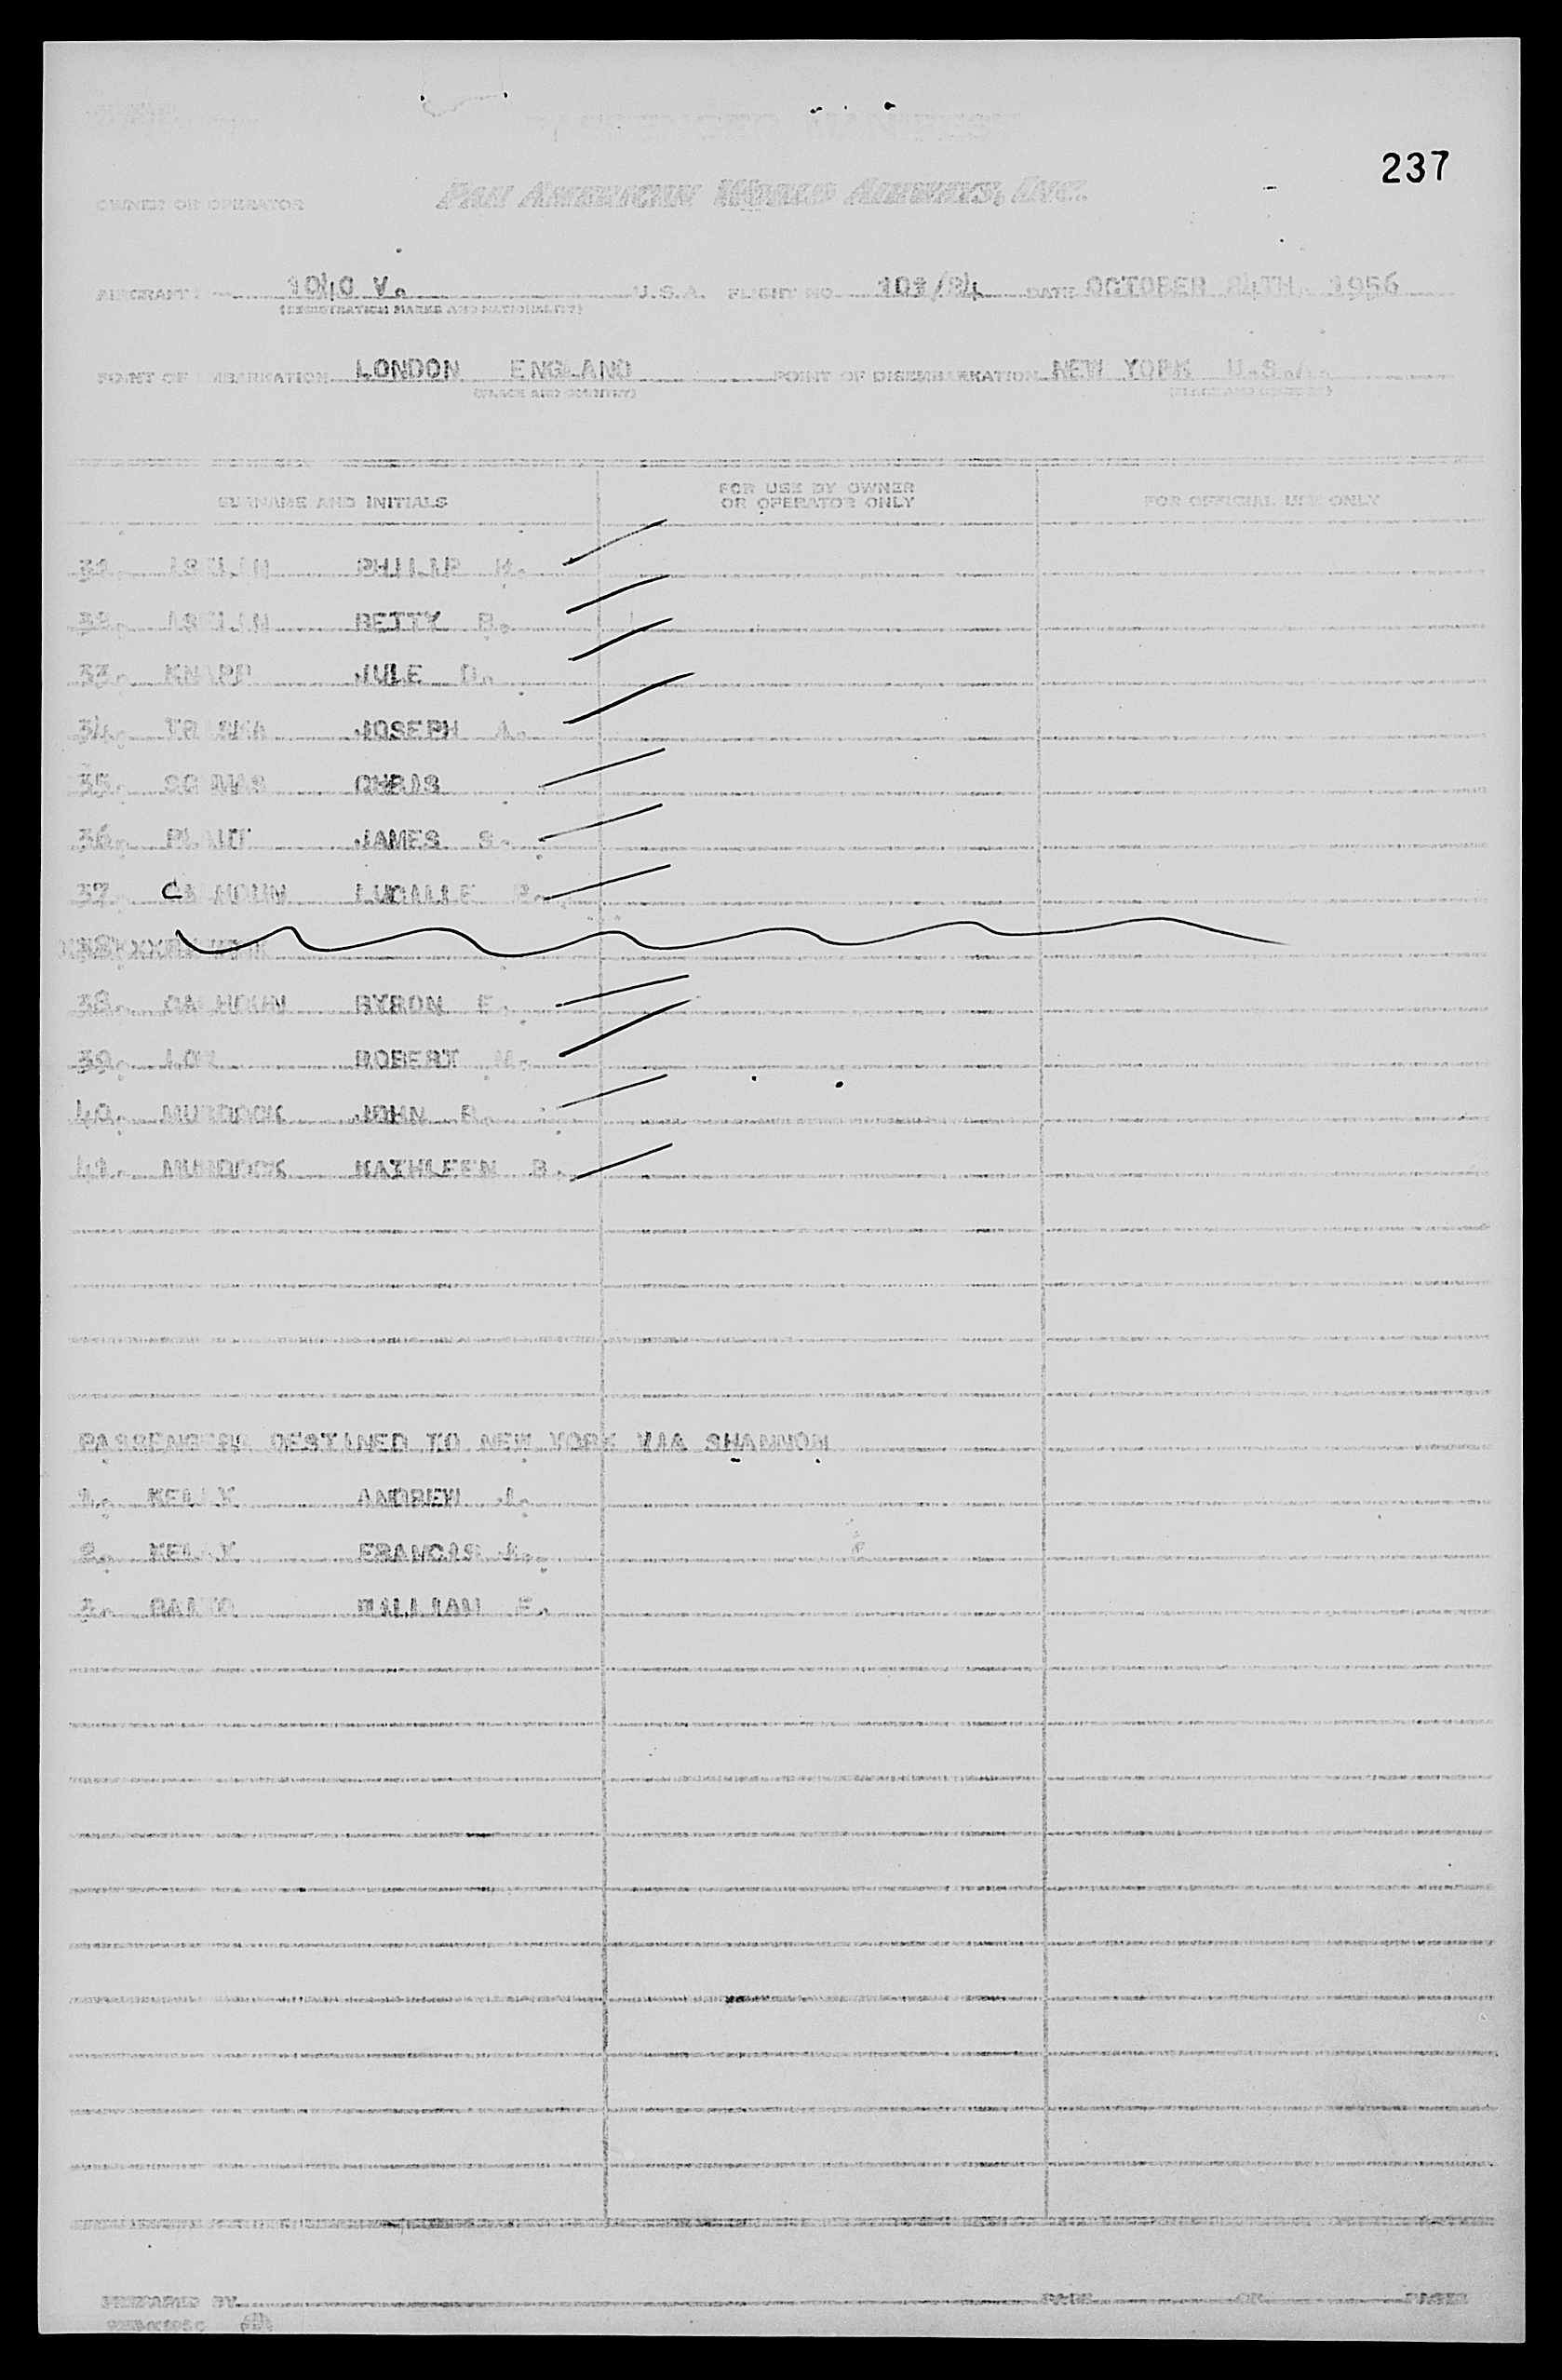 237
PASSENGER MANIFEST
OWNER OR OPERATOR PAN AMERICAN WORLD AIRWAYS, INC.
AIRCRAFT 1040 V. U.S.A. FLIGHT NO. 101/24 DATE OCTOBER 24TH. 1956
(REGISTRATION MARKS AND NATIONALITY)
POINT OF EMBARKATION LONDON ENGLAND POINT OF DISEMBARKATION NEW YORK U.S.A.
(PLACE AND COUNTRY) (PLACE AND COUNTRY)
SURNAME AND INITIALS FOR USE BY OWNER OR OPERATOR ONLY FOR OFFICIAL USE ONLY
31. PHILIP
32. BETTY B.
33. KNAPP JULE D.
34. JOSEPH A.
35. CHRIS
36. PLAUT JAMES S.
37. CALHOUN LUCILLE P.
38. CALHOUN BYRON E.
39. ROBERT
40. MURDOCK JOHN B.
41. MURDOCK KATHLEEN B.
PASSENGERS DESTINED TO NEW YORK VIA SHANNON
1. KELLY ANDREW J.
2. KELLY FRANCIS J.
3. WILLIAM F.
PREPARED BY PAGE OF PAGES